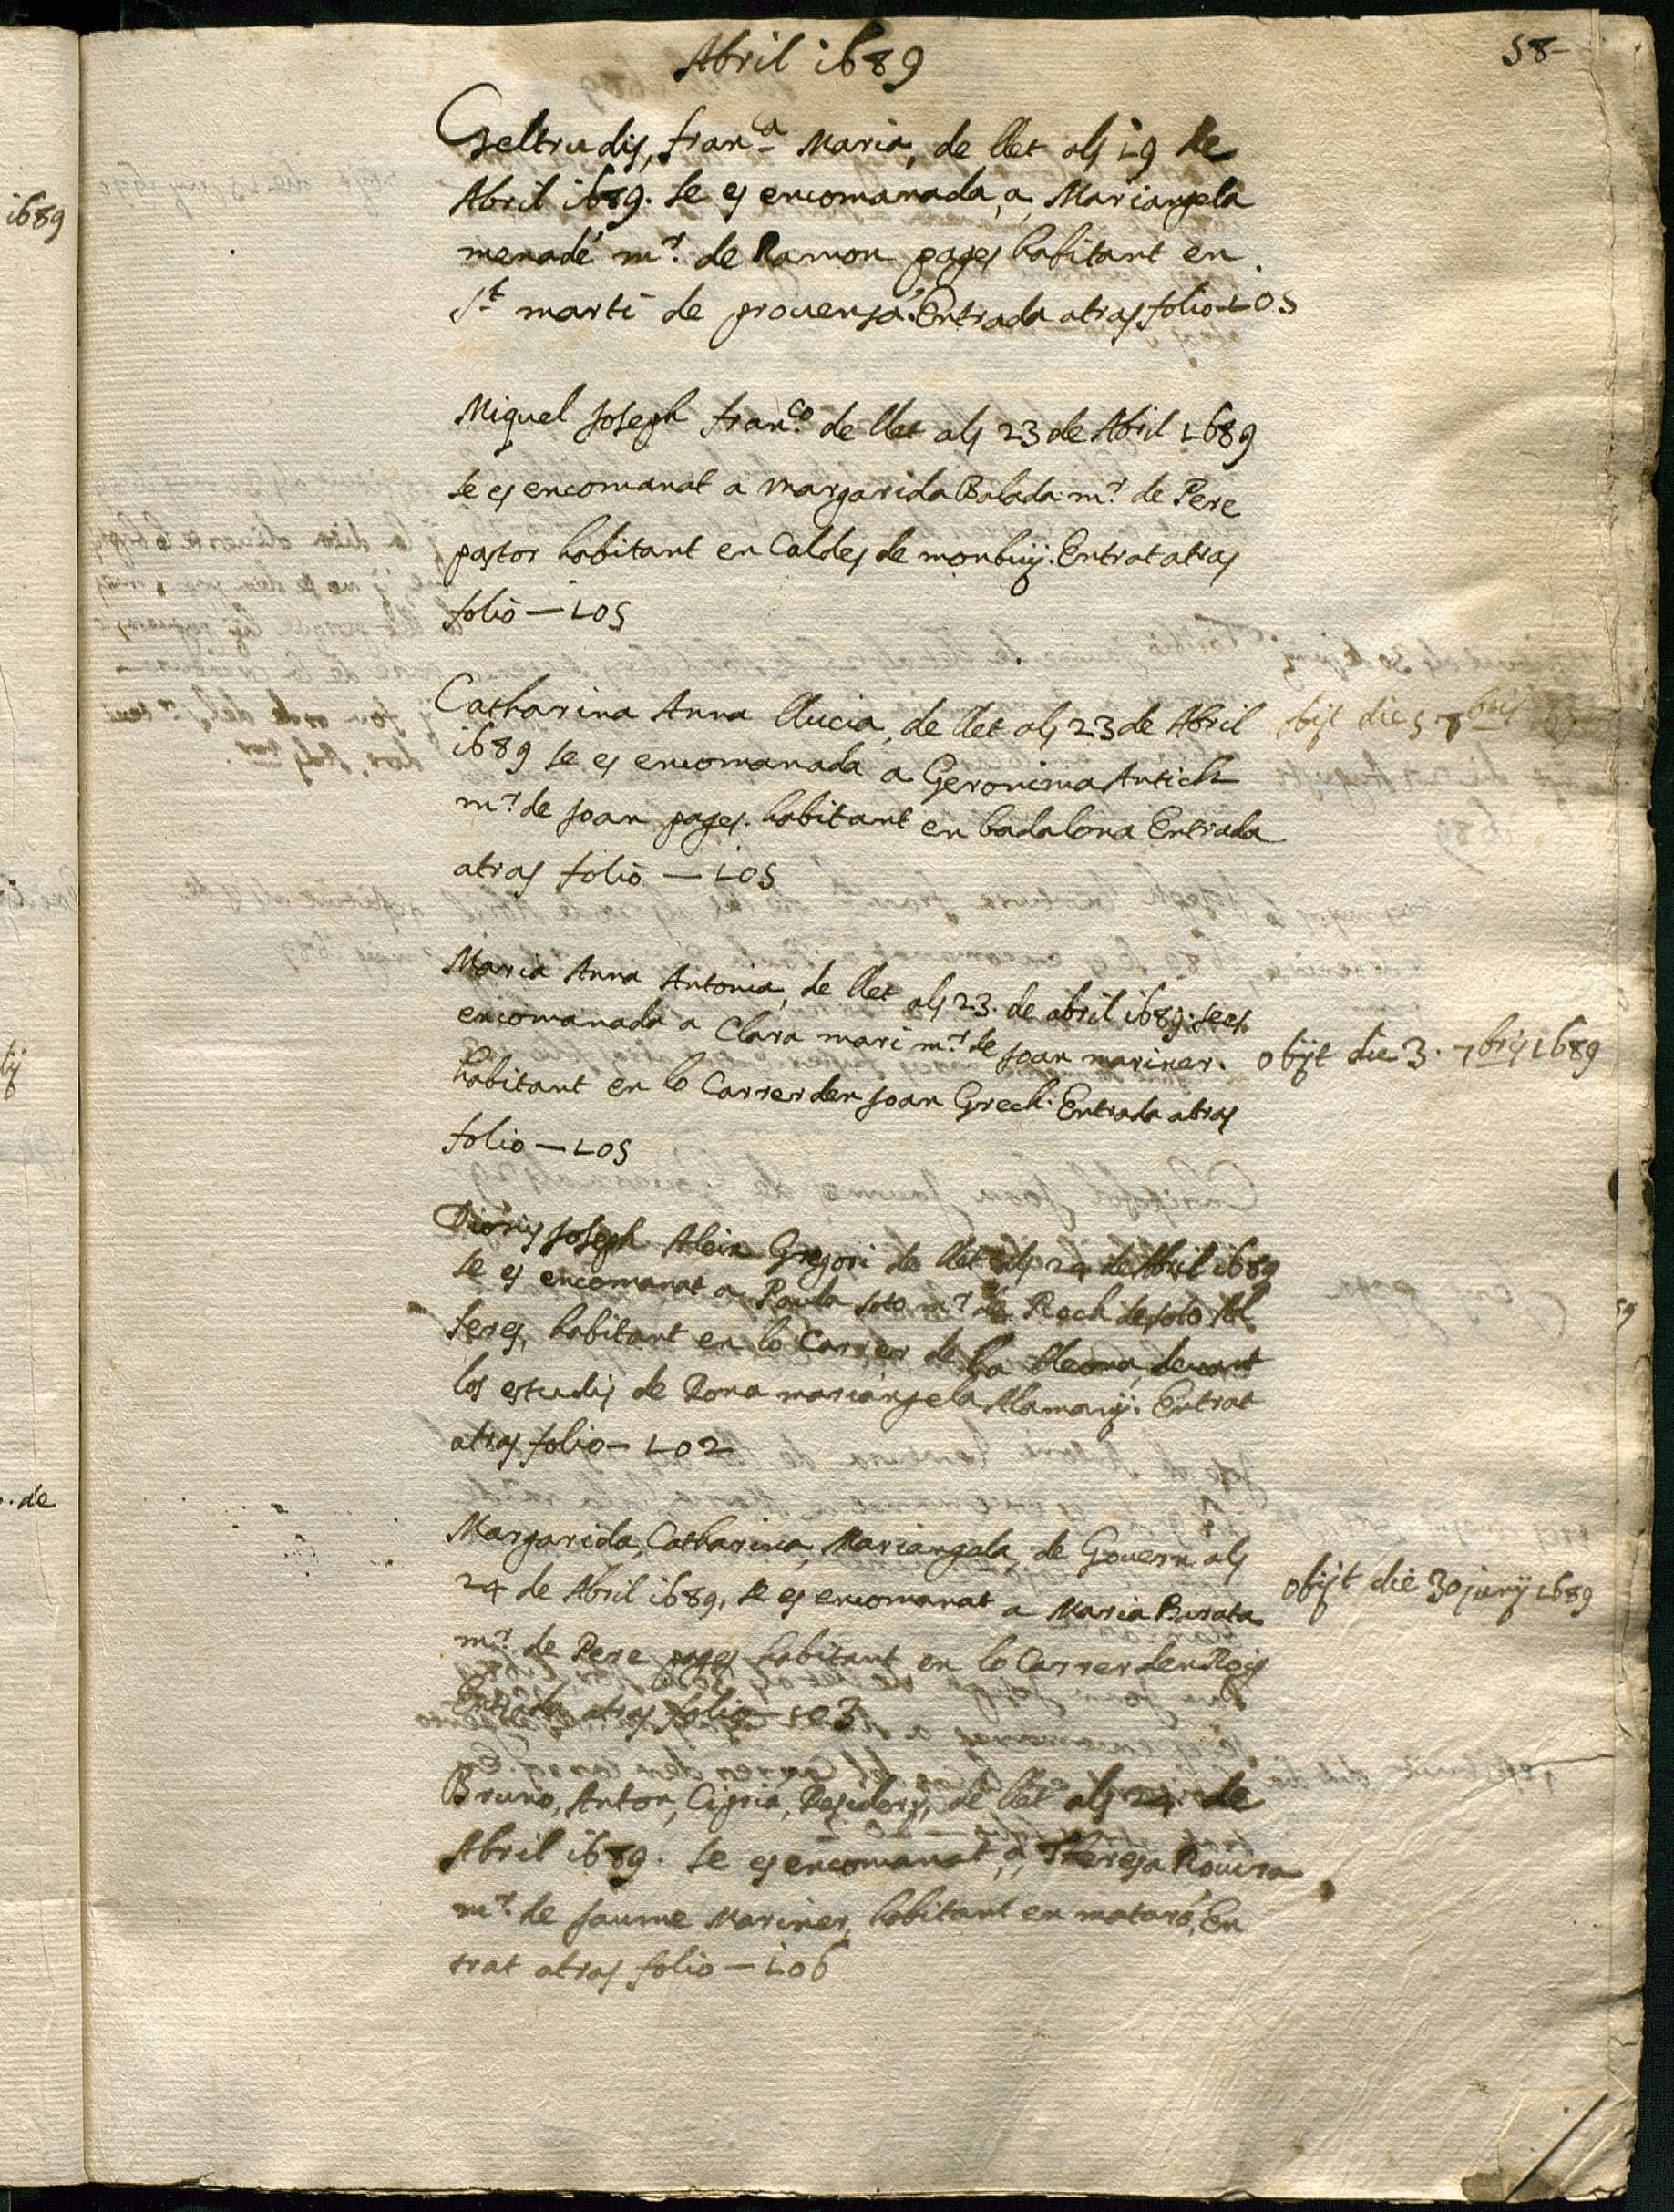 Abril 1689
58
Geltrudis, fran.ca Maria, de llet als 19 de
Abril 1689. se es encomanada, a, Mariangela
menadé m.r de Ramon pages habitant en
S.t marti de provensá. Entrada atras folio 105
Miquel Joseph fran.co de llet als 23 de Abril 1689
se es encomanat a margarida Balada m.r de Pere
pastor habitant en Caldes de monbuy. Entrat atras
folio — 105
Catharina Anna Llucia, de llet als 23 de Abril
obijt die 5 7bris
1689 se es encomanada a Geronima Antich
m.r de Joan pages. habitant en badalona Entrada
atras folio — 105
Maria Anna Antonia, de llet als 23. de abril 1689. se es
encomanada a Clara mari m.r de Joan mariner.
obijt die 3. 7bris 1689
habitant en lo Carrer den Joan Grech. Entrada atras
folio — 105
Dionis Joseph Aleix Gregori de llet als 24 de Abril 1689
se es encomanat a Paula soto m.r de Roch de soto Al
feres, habitant en lo Carrer de la lleona, devant
los estudis de Dona mariangela Alamany. Entrat
atras folio — 102
Margarida, Catharina, Mariangela, de Govern als
24 de Abril 1689, se es encomanat a Maria Burata
obijt die 30 junij 1689
m.r de Pere pages habitant en lo Carrer den Roig
atras folio — 103
Bruno, Anton, Ciprià, Desideri, de llet als 24 de
Abril 1689. se es encomanat, a, Theresa Rovira
m.r de Jaume Mariner, habitant en mataró, En
trat atras folio — 106